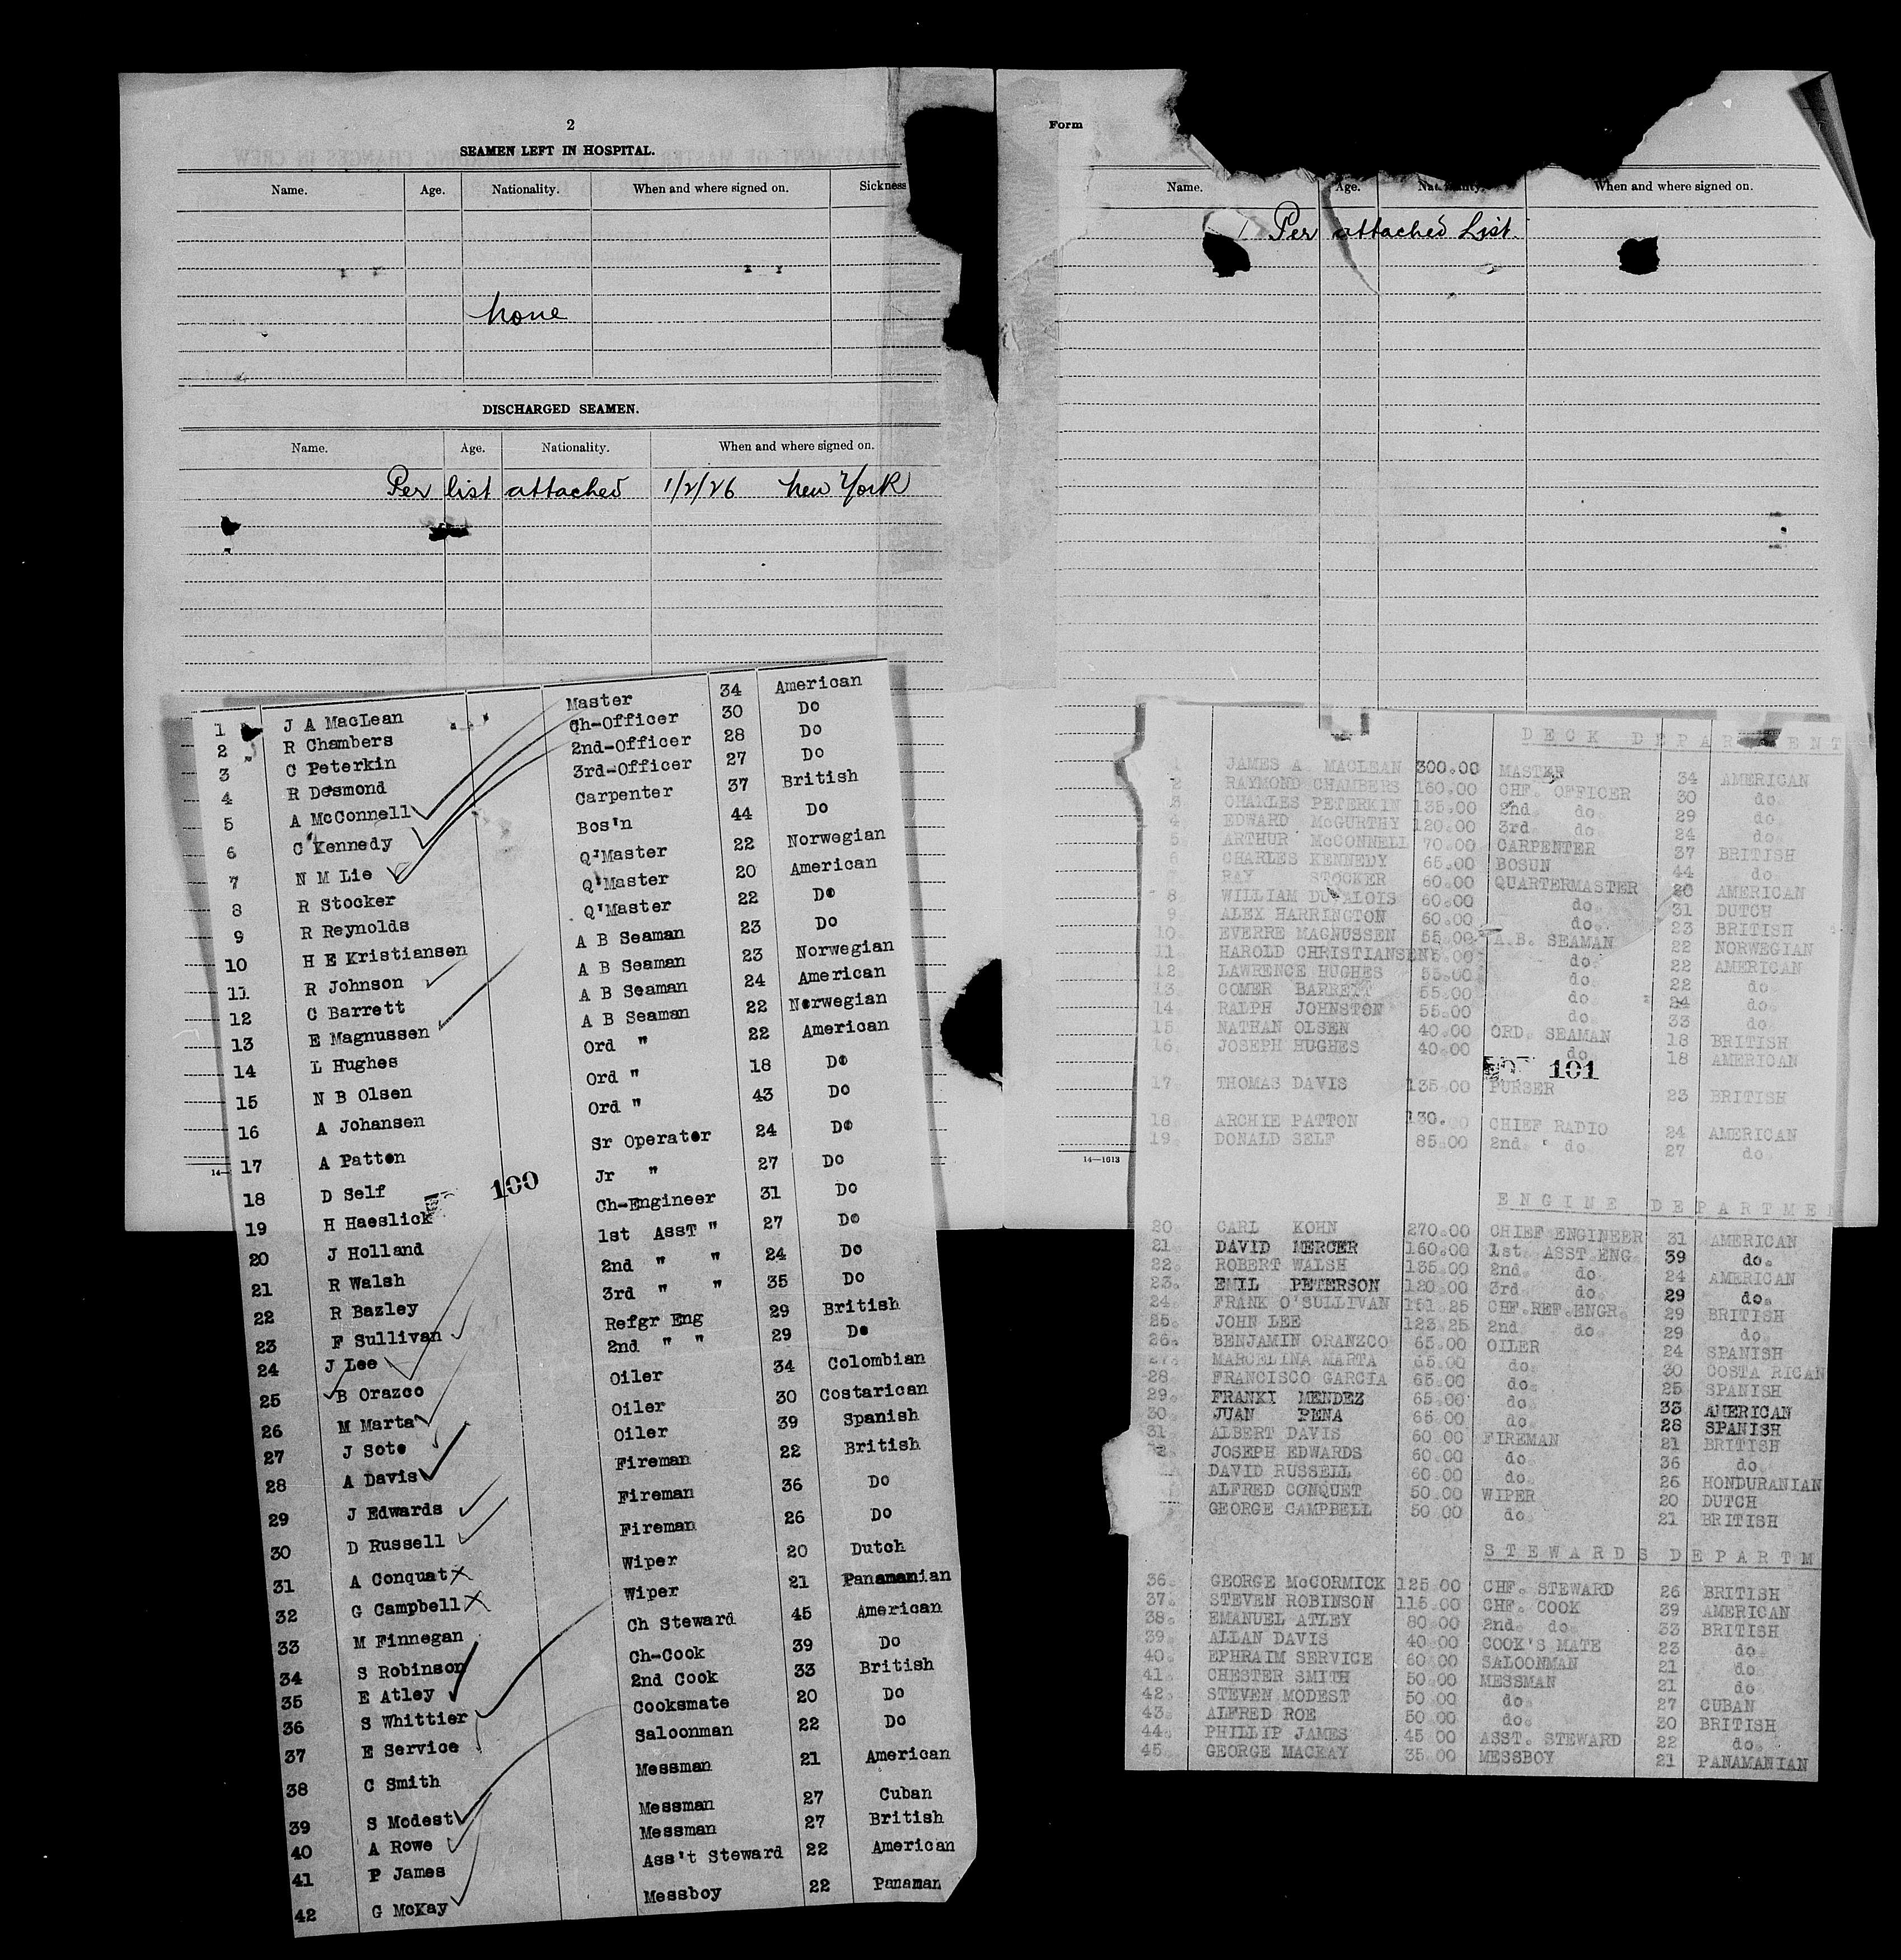 2
SEAMEN LEFT IN HOSPITAL.
Name. Age. Nationality. When and where signed on. Sickness
None
DISCHARGED SEAMEN.
Name. Age. Nationality. When and where signed on.
Per list attached 1/2/26 New York
1 J A MacLean Master 34 American
2 R Chambers Ch-Officer 30 Do
3 C Peterkin 2nd-Officer 28 Do
4 R Desmond 3rd-Officer 27 Do
5 A McConnell Carpenter 37 British
6 C Kennedy Bos'n 44 Do
7 N M Lie Q'Master 22 Norwegian
8 R Stocker Q'Master 20 American
9 R Reynolds Q'Master 22 Do
10 H E Kristiansen A B Seaman 23 Do
11 R Johnson A B Seaman 23 Norwegian
12 C Barrett A B Seaman 24 American
13 E Magnussen A B Seaman 22 Norwegian
14 L Hughes Ord " 22 American
15 N B Olsen Ord " 18 Do
16 A Johansen Ord " 43 Do
17 A Patton Sr Operator 24 Do
18 D Self Jr " 27 Do
100
19 H Haeslick Ch-Engineer 31 Do
20 J Holland 1st AssT " 27 Do
21 R Walsh 2nd " " 24 Do
22 R Bazley 3rd " " 35 Do
23 F Sullivan Refgr Eng 29 British
24 J Lee 2nd " " 29 Do
25 B Orazco Oiler 34 Colombian
26 M Marta Oiler 30 Costarican
27 J Soto Oiler 39 Spanish
28 A Davis Fireman 22 British
29 J Edwards Fireman 36 Do
30 D Russell Fireman 26 Do
31 A Conquat Wiper 20 Dutch
32 G Campbell Wiper 21 Panamanian
33 M Finnegan Ch Steward 45 American
34 S Robinson Ch-Cook 39 Do
35 E Atley 2nd Cook 33 British
36 S Whittier Cooksmate 20 Do
37 E Service Saloonman 22 Do
38 C Smith Messman 21 American
39 S Modest Messman 27 Cuban
40 A Rowe Messman 27 British
41 P James Ass't Steward 22 American
42 G McKay Messboy 22 Panaman
14—
Form
Name. Age. When and where signed on.
Per attached List.
DECK DEPARTMENT
1 JAMES A. MACLEAN 300.00 MASTER 34 AMERICAN
2 RAYMOND CHAMBERS 160.00 CHF. OFFICER 30 do.
3. CHARLES PETERKIN 135.00 2nd do. 29 do.
4. EDWARD McGURTHY 120.00 3rd do 24 do.
5. ARTHUR McCONNELL 70.00 CARPENTER 37 BRITISH
6 CHARLES KENNEDY 65.00 BOSUN 44 do.
RAY STOCKER 60.00 QUARTERMASTER 20 AMERICAN
8. WILLIAM 60.00 do. 31 DUTCH
9. ALEX HARRINGTON 60.00 do. 23 BRITISH
10. EVERRE MAGNUSSEN 55.00 A.B. SEAMAN 22 NORWEGIAN
11 HAROLD CHRISTIANSEN do. 22 AMERICAN
12. LAWRENCE HUGHES 55.00 do. 22 do.
13. COMER BARRETT 55.00 do. 24 do.
14. RALPH JOHNSTON 55.00 do. 33 do.
15 NATHAN OLSEN 40.00 ORD. SEAMAN 18 BRITISH
16. JOSEPH HUGHES 40.00 do 18 AMERICAN
101
17. THOMAS DAVIS 135.00 PURSER 23 BRITISH
18. ARCHIE PATTON 130.00 CHIEF RADIO 24 AMERICAN
19. DONALD SELF 85.00 2nd do 27 do.
14—1613
ENGINE DEPARTME
20. CARL KOHN 270.00 CHIEF ENGINEER 31 AMERICAN
21. DAVID MERCER 160.00 1st. ASST ENG. 39 do.
22. ROBERT WALSH 135.00 2nd. do. 24 AMERICAN
23. EMIL PETERSON 120.00 3rd do. 29 do.
24. FRANK O'SULLIVAN 151.25 CHF.REF.ENGR. 29 BRITISH
25. JOHN LEE 123.25 2nd do 29 do.
26. BENJAMIN ORANZCO 65.00 OILER 24 SPANISH
27. MARCELINA MARTA 65.00 do. 30 COSTA RICAN
28. FRANCISCO GARCIA 65.00 do. 25 SPANISH
29. FRANKI MENDEZ 65.00 do 33 AMERICAN
30. JUAN PENA 65.00 do. 28 SPANISH
31. ALBERT DAVIS 60.00 FIREMAN 21 BRITISH
JOSEPH EDWARDS 60.00 do 36 do.
DAVID RUSSELL 60.00 do. 26 HONDURANIAN
ALFRED CONQUET 50.00 WIPER 20 DUTCH
GEORGE CAMPBELL 50.00 do. 21 BRITISH
STEWARDS DEPARTM
36. GEORGE McCORMICK 125.00 CHF. STEWARD 26 BRITISH
37. STEVEN ROBINSON 115.00 CHF. COOK 39 AMERICAN
38. EMANUEL ATLEY 80.00 2nd. do. 33 BRITISH
39. ALLAN DAVIS 40.00 COOK'S MATE 23 do.
40. EPHRAIM SERVICE 60.00 SALOONMAN 21 do.
41. CHESTER SMITH 50.00 MESSMAN 21 do
42. STEVEN MODEST 50.00 do. 27 CUBAN
43. ALFRED ROE 50.00 do. 30 BRITISH
44. PHILLIP JAMES 45.00 ASST. STEWARD 22 do.
45. GEORGE MACKAY 35.00 MESSBOY 21 PANAMANIAN